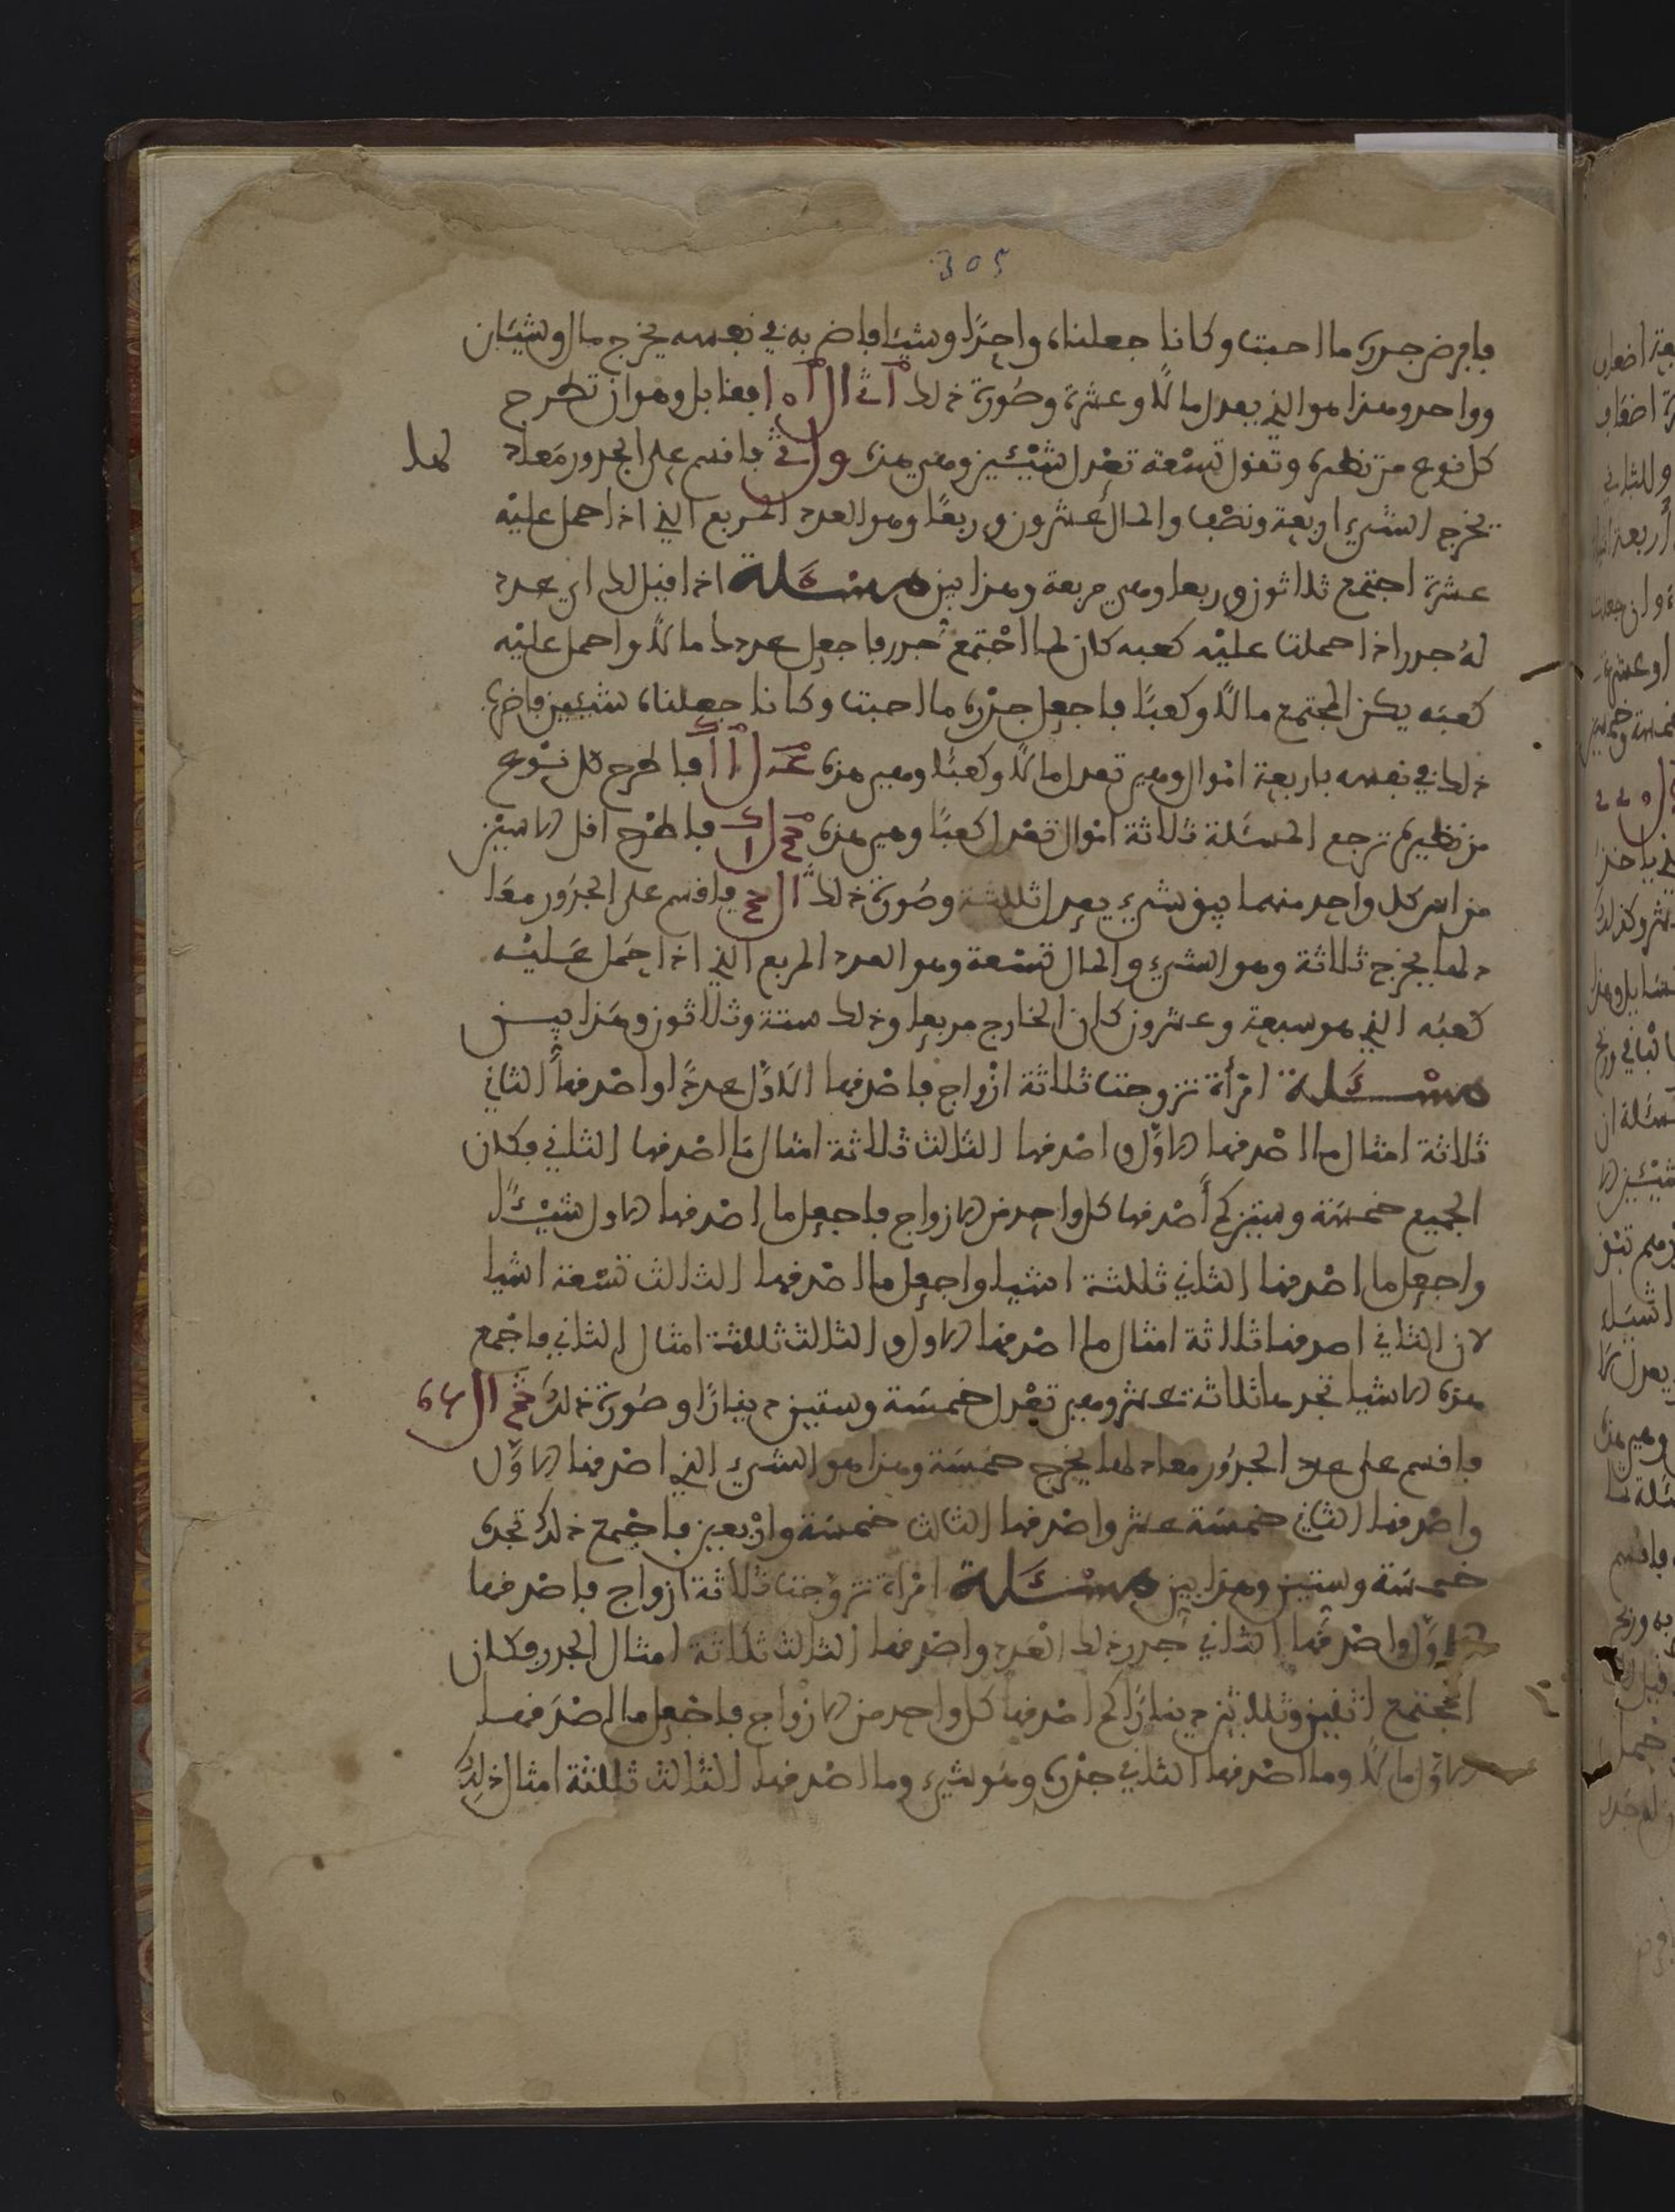 305
فافرض جدره ما احببت وكانا جعلناه واحدًا وشيئا فاضربه في نفسه يخرج مال وشيئان
وواحد وهذا هو الذي يعدل مالًا وعشرة وصورة ذلك فقابل وهو ان تطرح
كل نوع من نظيره وتقول تسْعة تعْدل شيْئين وهي هذه فاقسم على الجدور معاد لها
يخرج الشيء اربعة ونصْف والمال عشرون وربعًا وهو العدد المربع الذي اذا حمل عليْه
عشرة اجتمع ثلاثون وربعا وهي مربعة وهذا بين مسْئلة اذا قيل لك اي عدد
لهُ جدر اذا حملت عليْه كعبه كان لما اجْتمع جدر فاجعل عددك مالًا واحمل عليْه
كعبَه يكن المجتمع مالًا وكعبًا فاجعل جدْره ما احببت وكانا جعلناه شيئين فاضرب
ذلك في نفسه باربعة امْوال وهي تعدل مالًا وكعبًا وهي هذه فاطرح كل نوْع
من نظيره ترجع المسئلة ثلاثة امْوال تعْدل كعبًا وهي هذه فاطرْح اقل الاسيْن
من اس كل واحد منهما يبق شيء يعدل ثلثة وصُورة ذلك فاقسم على الجدُور معَا
دلها يخرج ثلاثة وهو الشيء والمال تسْعة وهو العدد المربع الذي اذا حَمل عَليْه
كعبُه الذي هو سبعة وعشرون كان الخارج مربعا وذلك ستة وثلاثون وهَذا بيـن
مسْـئلة امْرأة تزوجت ثلاثة ازْواج فاصْدقها الاوّل عددًا واصْدقها الثاني
ثلاثة امثال ما اصْدقها الاوّل واصْدقها الثالث ثلاثة امثال مَا اصْدقها الثاني فكان
الجميع خمسَة وستين كم أَصْدقها كل واحد من الازواج فاجعل ما اصْدقها الاول شيْئًا
واجعل ما اصْدقها الثاني ثلثة اشيا واجعل ما اصْدقها الثالث تسْعة اشيا
لان الثاني اصدقها ثلاثة امثال ما اصْدقها الاول والثالث ثلثة امثال الثاني فاجْمع
هذه الاشيا تجدها ثلاثة عشر وهي تعْدل خمسَة وستين دينارًا وصُورة ذلكَ
فاقسم على عدد الجدُور معاد لها يخرج خمسَة وهذا هو الشيء الذي اصْدقها الاوَّل
واصْدقها الثاني خمسَة عشر واصْدقها الثالث خمسَة وارْبعين فاجْمع ذلك تجده
خمسَة وستين وهذا بين مسْئَلة امْرأة تزوّجت ثلاثة ازواج فاصْدقها
الاوّل واصْدقها الثاني جدر ذلك العَدد واصْدقها الثالث ثلاثة امثال الجدر فكان
المجْتمع اثنين وثلاثين دينارًا كم اصْدقها كل واحد من الازْواج فاجْعل ما اصْدَقهـا
الاوّل مالًا وما اصْدقها الثاني جدْره وهُو شيء وما اصْدقها الثالث ثلثة امثال ذلك